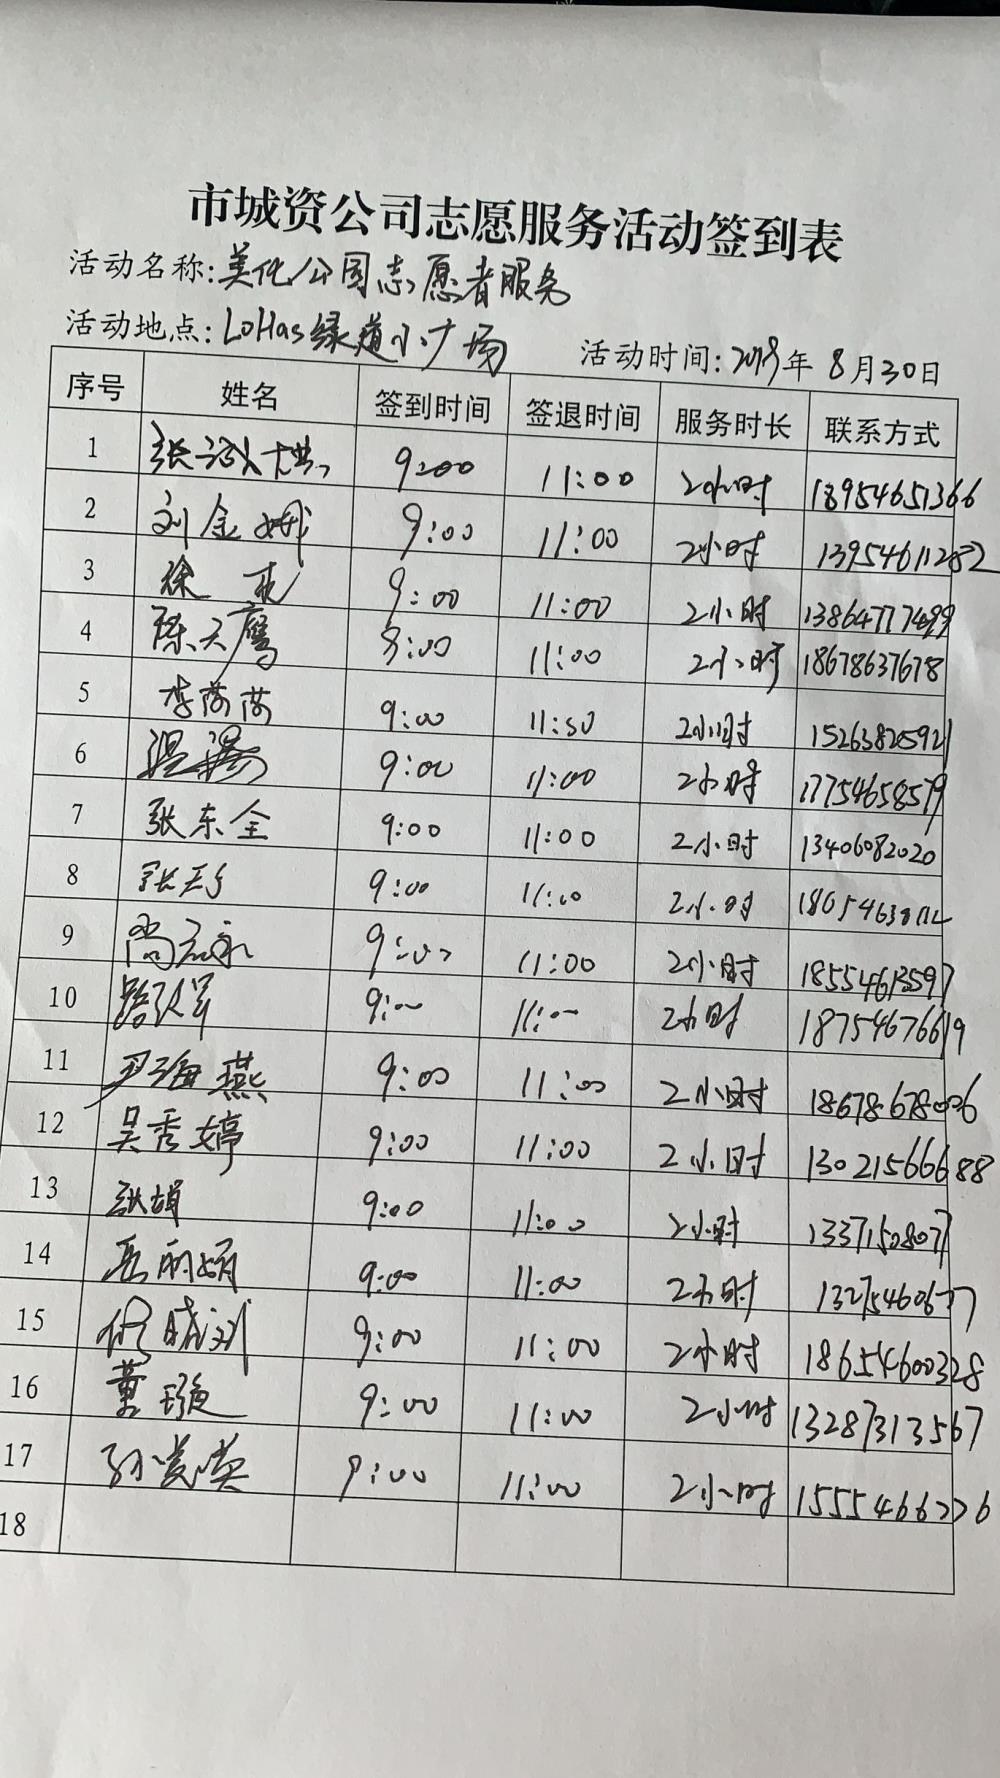 市城资公司志愿服务活动签到表
活动名称:美化公园志愿者服务
活动地点:LoHas绿道小广场 活动时间:2019年8月30日
序号 姓名 签到时间 签退时间 服务时长 联系方式
1 9:00 11:00 2小时 18954651366
2 刘金娜 9:00 11:00 2小时 13954611282
3 徐 9:00 11:00 2小时 13864777499
4 陈天鹰 9:00 11:00 2小时 18678637678
5 李茜茜 9:00 11:50 2小时 15263825921
6 9:00 11:00 2小时 17754658579
7 张东全 9:00 11:00 2小时 13406082020
8 9:00 11:00 2小时
9 尚 9:00 11:00 2小时 18554613597
10 9:00 11:00 2小时 18754676619
11 尹海燕 9:00 11:00 2小时 18678678006
12 吴秀婷 9:00 11:00 2小时 13021566688
13 张 9:00 11:00 2小时 13371508077
14 9:00 11:00 2小时 13275460677
15 9:00 11:00 2小时 18654600328
16 董璇 9:00 11:00 2小时 13287313567
17 孙 9:00 11:00 2小时 15554666226
18